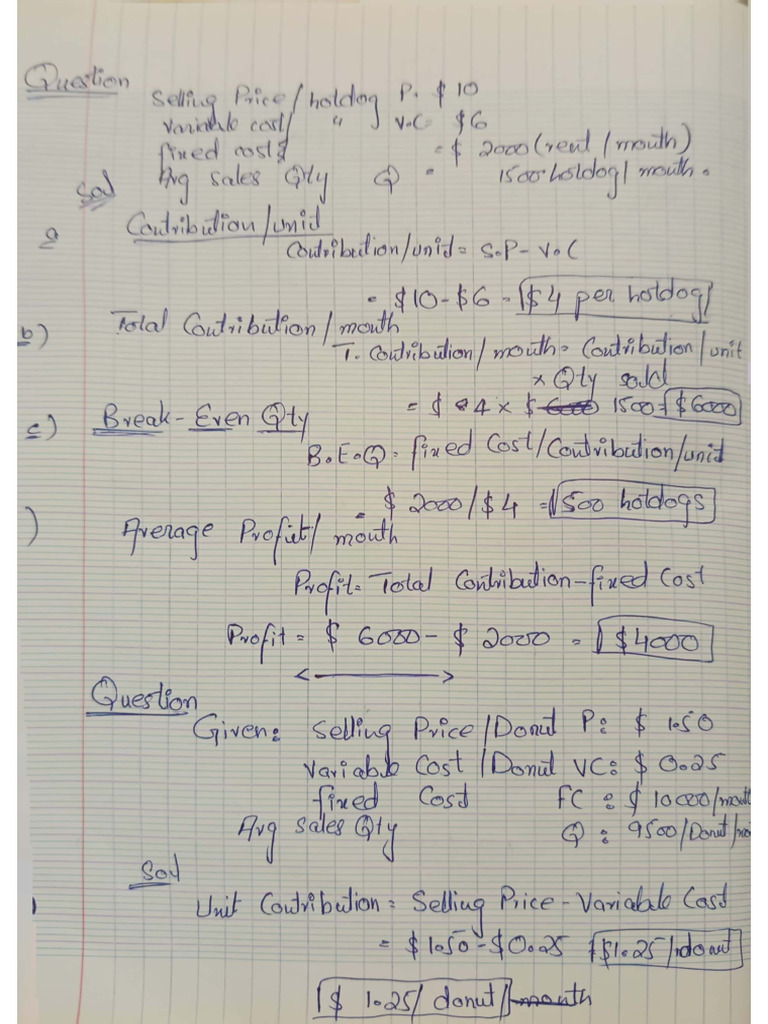 Question
Selling Price/holdog P. $ 10
variable cost/ " V.C $6
fixed cost = $ 2000 (rent / month)
Avg sales Qty Q = 1500 holdog/ month.
Sol
a Contribution/unid
Contribution/unid = S.P - V.C
= $10-$6 = $4 per holdog/
b) Total Contribution / month
T. Contribution / month = Contribution / unit
x Qty sold
= $ 4 x $ 6000 1500 = $6000
c) Break-Even Qty
B.E.Q = fixed Cost/Contribution/unid
= $ 2000/$4 = 500 holdogs
) Average Profiet/ month
Profit = Total Contribution - fixed Cost
Profit = $ 6000 - $ 2000 = $4000
Question
Given: Selling Price/Donut P: $ 1.50
Variable Cost /Donut VC: $ 0.25
fixed Cost FC : $ 10000/mout
Avg Sales Qty Q : 9500/Donut/mo
Sol
Unit Contribution = Selling Price - Variable Cost
= $1.50-$0.25 $1.25/donut
$ 1.25/ donut/month